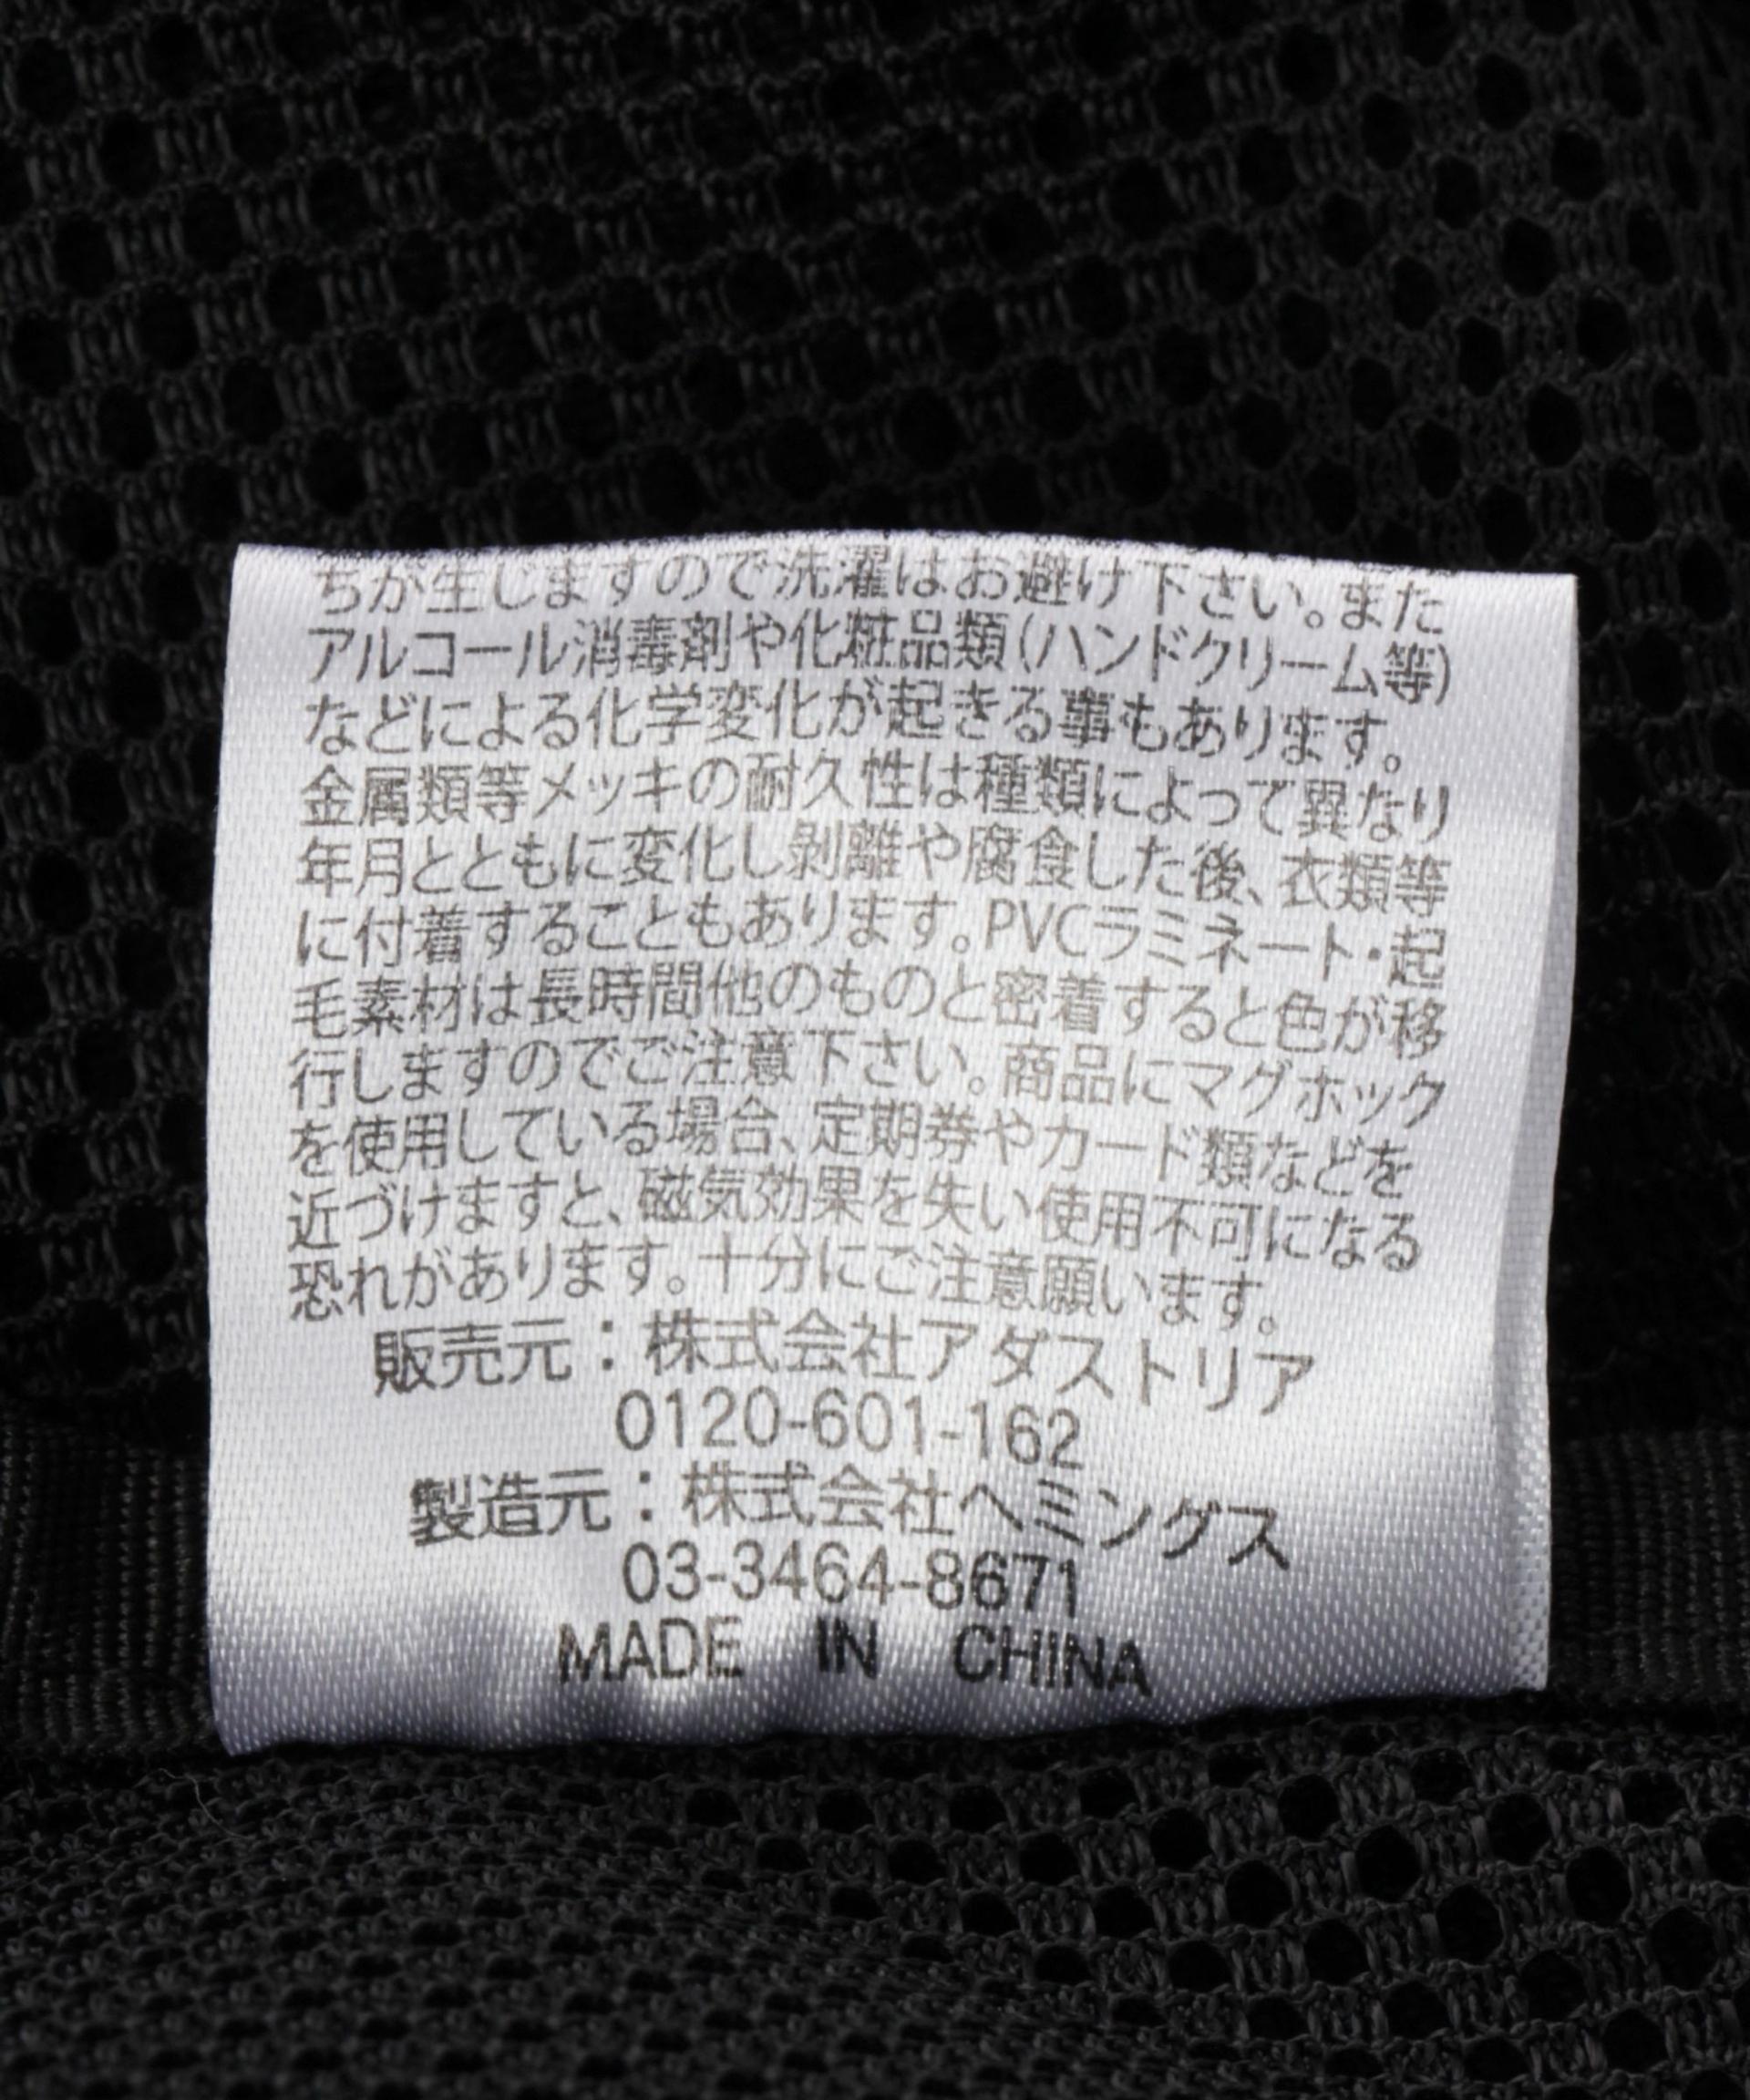 ちが生じますので洗濯はお避け下さい。また
アルコール消毒剤や化粧品類(ハンドクリーム等)
などによる化学変化が起きる事もあります。
金属類等メッキの耐久性は種類によって異なり
年月とともに変化し剥離や腐食した後、衣類等
に付着することもあります。PVCラミネート・起
毛素材は長時間他のものと密着すると色が移
行しますのでご注意下さい。商品にマグホック
を使用している場合、定期券やカード類などを
近づけますと、磁気効果を失い使用不可になる
恐れがあります。十分にご注意願います。
販売元：株式会社アダストリア
0120-601-162
製造元：株式会社ヘミングス
03-3464-8671
MADE IN CHINA